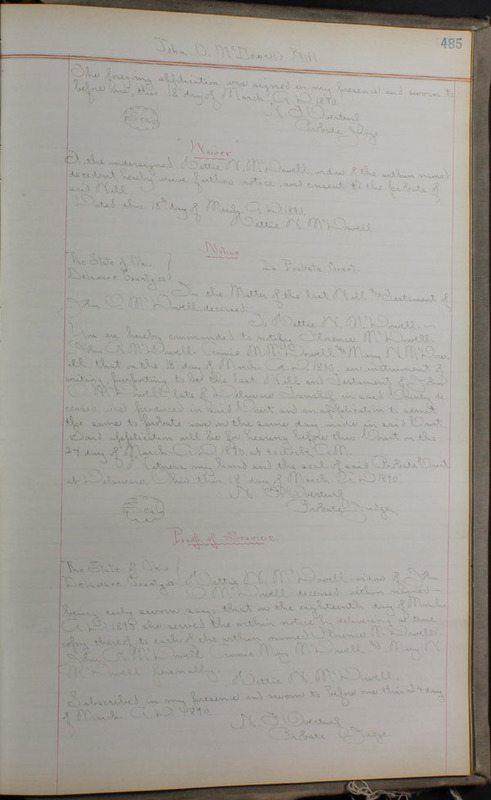 485
John D. McDowell's Will
The foregoing application was signed in my presence and sworn to
before me, this 18 day of March A.D. 1890.
N. F. Overturf
Seal
Probate Judge
Waiver
I, the undersigned Nettie N. McDowell, widow of the within named
decedent hereby waive further notice, and consent to the probate of
said Will.
Dated this 18th day of March A.D. 1890.
Nettie N. McDowell
Notice
The State of Ohio
Delaware County ss
In Probate Court.
In the Matter of the Last Will & Testament of
John D. McDowell deceased.
To Nettie N. McDowell
You are hereby commanded to notify Florence McDowell
John R. McDowell, Annie M. McDowell & Mary N. McDow-
ell, that on the 18 day of March A.D. 1890. an instrument of
writing, purporting to be the last Will and Testament of John
D. McDowell late of Delaware Township, in said County de-
ceased, was produced in said Court and an application to admit
the same to probate was on the same day made in said Court.
Said application will be for hearing before this Court on the
24 day of March A.D. 1890, at o'clock A.M.
Witness my hand and the seal of said Probate Court
at Delaware, Ohio this 18 day of March A.D. 1890
N. F. Overturf
Seal
Probate Judge
Proof of Service.
The State of Ohio
Delaware County ss
Nettie N. McDowell, widow of John
D. McDowell deceased within named
being duly sworn says that on the eighteenth day of March
A.D. 1890, she served the within notice by delivering a true
copy thereof to each of the within named Florence McDowell
John R. McDowell Annie May McDowell & Mary N.
McDowell personally.
Nettie N. McDowell.
Subscribed in my presence and sworn to before me this 24 day
of March A.D. 1890.
N. F. Overturf
Probate Judge.